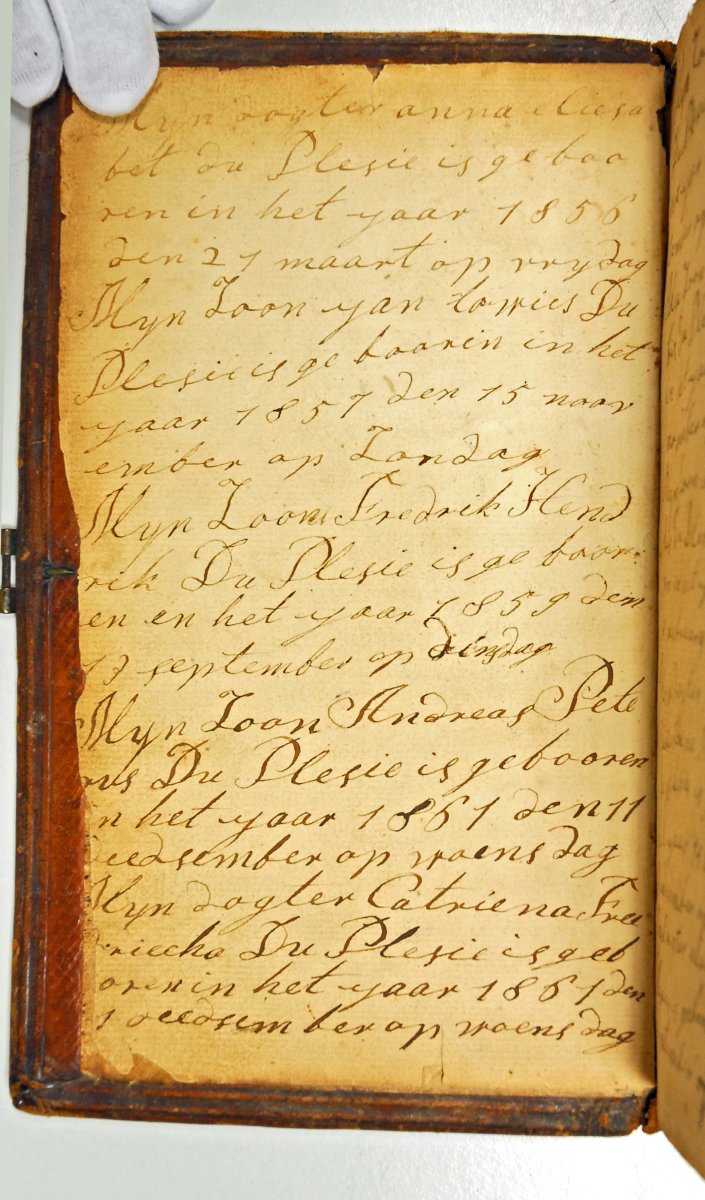 Myn dogter anna Eliesa
bet du Plesie is ge boo
ren in het yaar 1856
den 21 maart op vrydag
Myn Zoon yan Lowies Du
Plesie is ge booren in het
yaar 1857 den 15 noov
ember op Zondag
Myn Zoons Fredrik Hend
rik Du Plesie is ge boor
en en het yaar 1859 dem
13 september op dinsdag
Myn Zoon Andreas Pete
rus Du Plesie is gebooren
in het yaar 1861 den 11
deedsember op woensdag
Myn dogter Catriena Free
driecha Du Plesie is geb
ooren in het yaar 1861 den
11 deedsember op woensdag